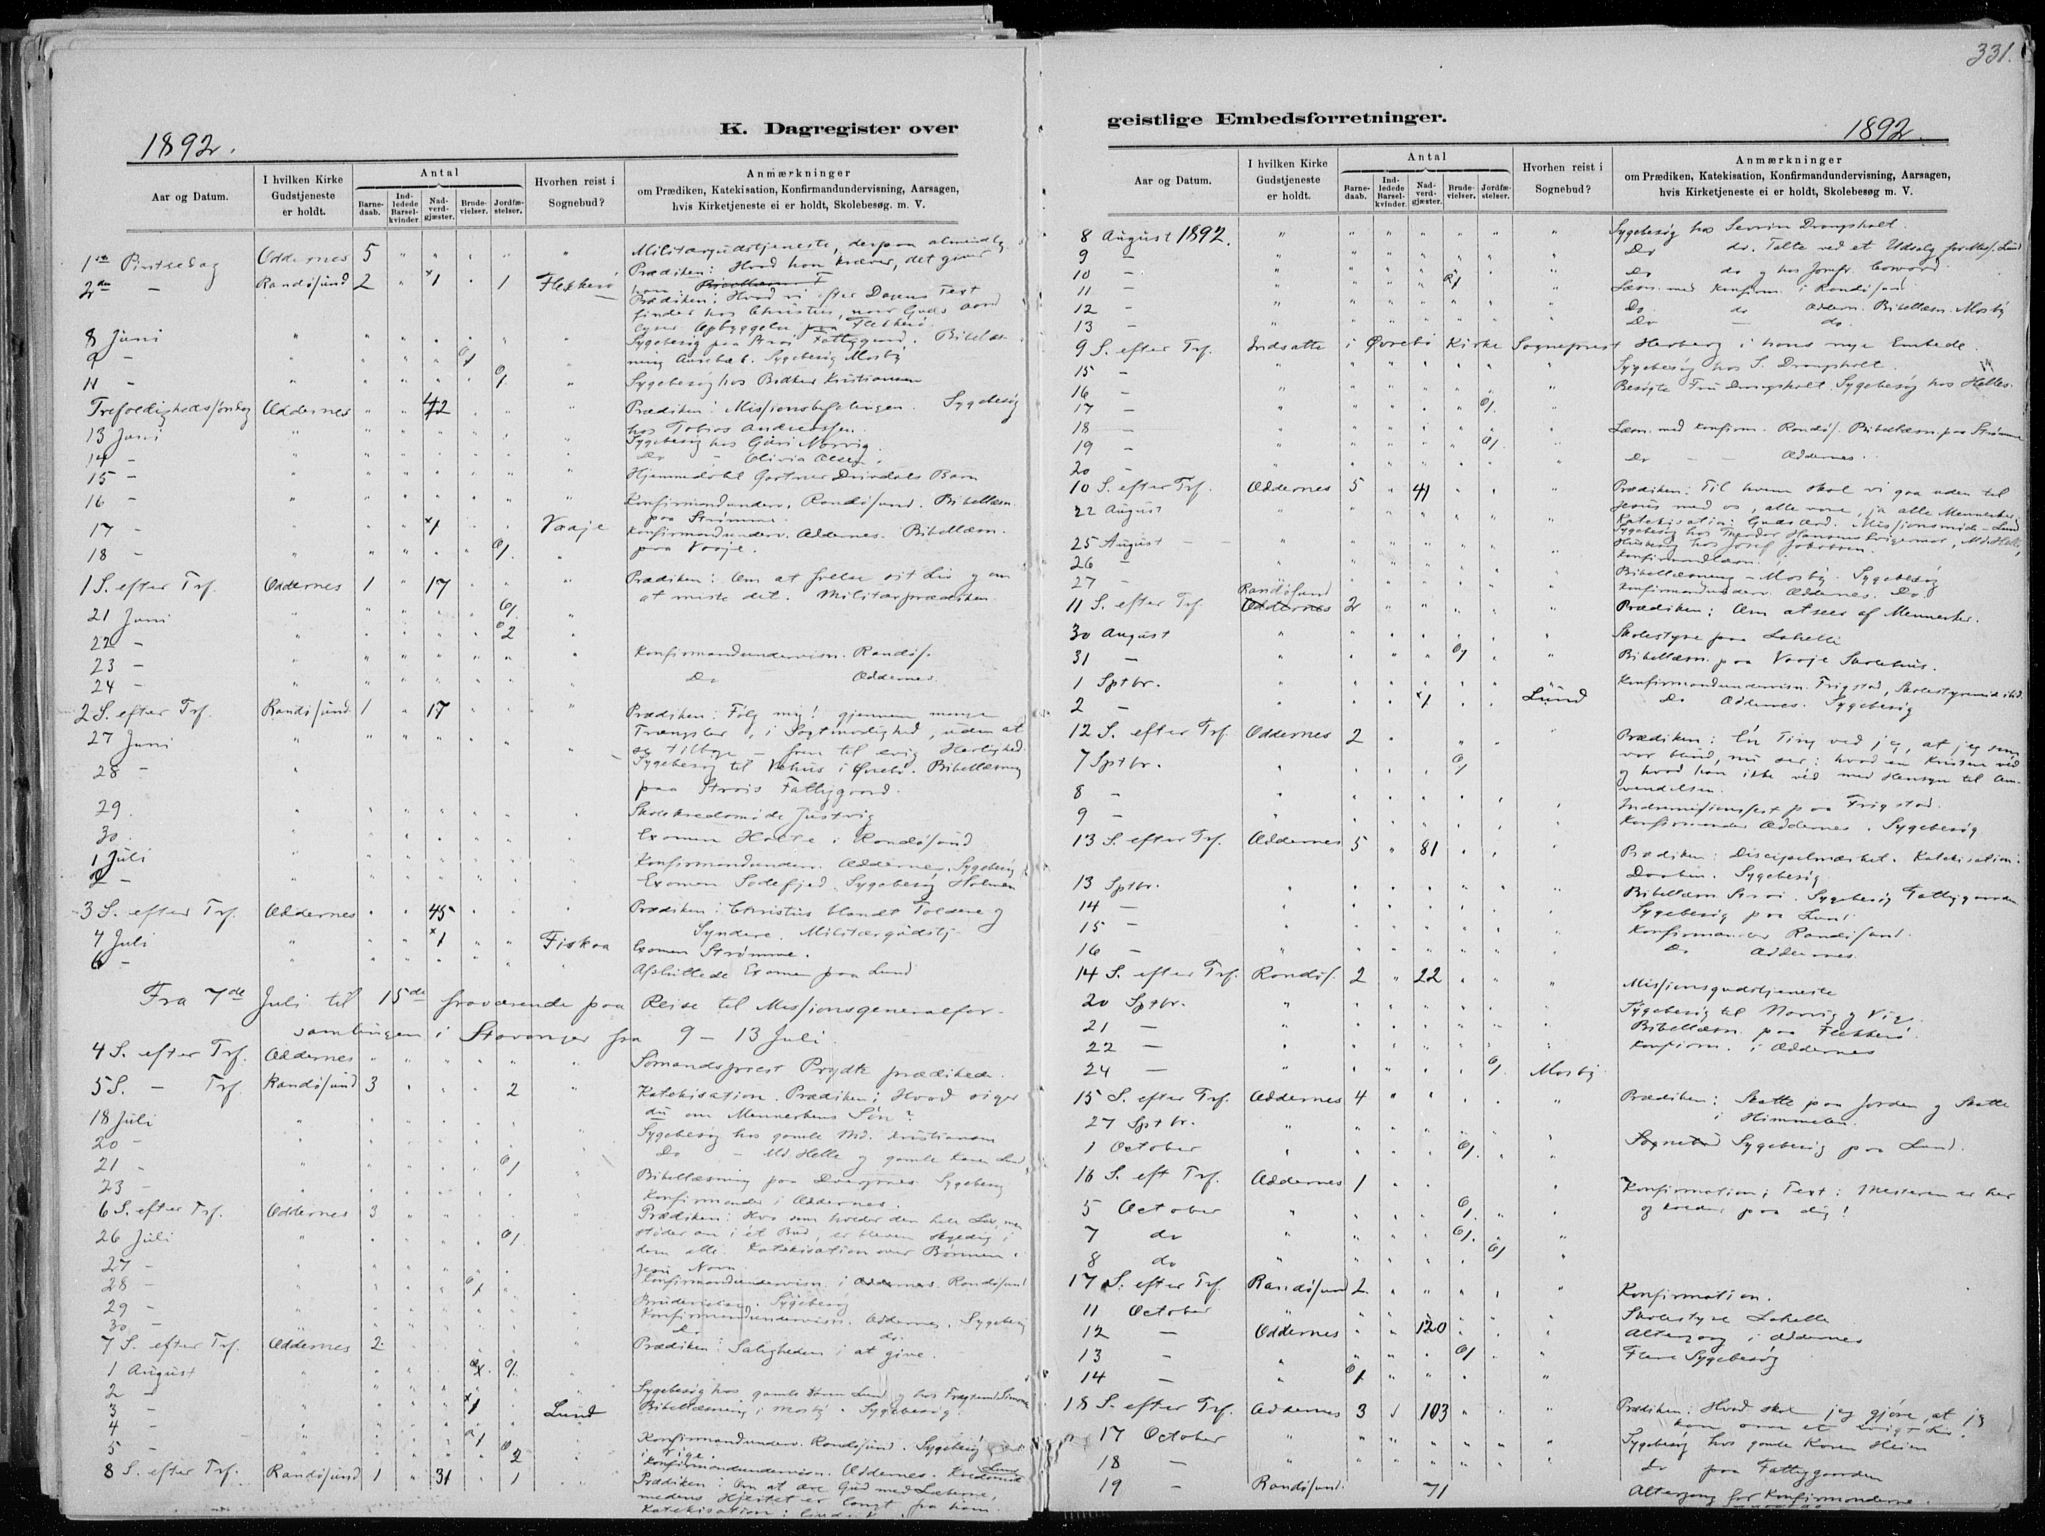 331.
1892.
K. Dagregister over
Aar og Datum.
I hvilken Kirke Gudstjeneste er holdt.
Antal
Barnedaab.
Indledede Barselkvinder.
Nadverdgjæster.
Brudevielser.
Jordfæstelser.
Hvorhen reist i Sognebud?
Anmærkninger
om Prædiken, Katekisation, Konfirmandundervisning, Aarsagen, hvis Kirketjeneste ei er holdt, Skolebesøg m. V.
1ste Pintsedag Oddernes 5 " " " " " Militærgudstjeneste, derpaa almindelig
Prædiken: Hvad han kræver, det giver
2den — Randøsund 2 " ×1 " 1 Flekkerø han:
Prædiken: Hvad vi efter Dagens Text
finder hos Christus, naar Guds Aand
Opbyggelse paa Flekkerø
8 Juni Sygebesøg paa Strai Fattiggaard. Bibellæs-
9 — 0/1 ning Sygebesøg Mosby
11 — 0/1 Sygebesøg hos Bødker Kristiansen
Trefoldighedssøndag Oddernes " " 42 Prædiken: Missionsbefalingen. Sygebesøg
hos Tobias Andreassen.
13 Juni Sygebesøg hos Narvig
14 — Do — Olivia Olsen
15 — Hjemmedøbt Gartner Barn
16 — Konfirmandunderv. Randøsund. Bibellæsn.
paa Strømme.
17 — ×1 Vaaje Konfirmandunderv. Oddernes. Bibellæsn.
18 — 0/1 paa Vaaje.
1 S. efter Trf. Oddernes 1 " 17 Prædiken: Om at frelse sit Liv og om
at miste det. Militærprædiken.
21 Juni 0/1
22 — 0/2
23 — Konfirmandundervisn. Randøs.
24 — Do Oddernes.
2 S. efter Trf. Randøsund 1 " 17 Prædiken: Følg mig! gjennem mange
27 Juni Trængsler, i Sagtmodighed, uden at
se tilbage — frem til evig Herlighed.
28 — Sygebesøg til i Øvrebø. Bibellæsning
paa Strais Fattiggaard.
29. Skolekredsmøde Justvig
30. Examen Holte i Randøsund
1 Juli Konfirmandunderv. Oddernes. Sygebesøg
2 — Examen Sødefjed. Sygebesøg Holmen
3 S. efter Trf. Oddernes " " 45 Prædiken: Christus blandt Toldere og
Syndere. Militærgudstj
4 Juli ×1 Fiskaa Examen Strømme.
6 — Afsluttede Examen paa Lund
Fra 7de Juli til 15de fraværende paa Reise til Missionsgeneralfor-
samlingen i Stavanger fra 9 – 13 Juli.
4 S. efter Trf. Oddernes Sømandsprest Prydtz prædikede.
5 S. — Trf. Randøsund 3 2 Katekisation. Prædiken: Hvad siger
18 Juli du om Menneskens Søn?
20 — Sygebesøg hos gamle Md. Kristiansen
21 — 0/1 Do — Md Helle og gamle Karen Lund
23 — Bibellæsning paa Dvergsnes. Sygebesøg
Konfirmander i Oddernes.
6 S. efter Trf. Oddernes 3 Prædiken: Hvo som holder den hele Lov, men
26 Juli 0/1 støder an i ét Bud, er bleven skyldig i
dem alle. Katekisation over Bønnen i
27 — Jesu Navn.
28 — 0/1 Konfirmandundervisn. i Randøsund
Brudevielse. Sygebesøg
29 — Konfirmandundervisn. Oddernes. Sygebesøg
30 — Do do.
7 S. efter Trf. Oddernes 2 Prædiken: Saligheden i at give.
1 August 0/1
2 — Sygebesøg hos gamle Karen Lund og hos
3 — ×1 Lund Bibellæsning i Mosby. Sygebesøg.
4 — 0/1 Konfirmandunderv. Randøsund. Sygebesøg
5 — 0/2 Konfirmandundervisn. Oddernes.
8 S. efter Trf. Randøsund 1 " 31 " 1 Prædiken: Om at ære Gud med Læberne,
medens Hjertet er langt fra ham.
Katekisation:
geistlige Embedsforretninger.
1892.
Aar og Datum.
I hvilken Kirke Gudstjeneste er holdt.
Antal
Barnedaab.
Indledede Barselkvinder.
Nadverdgjæster.
Brudevielser.
Jordfæstelser.
Hvorhen reist i Sognebud?
Anmærkninger
om Prædiken, Katekisation, Konfirmandundervisning, Aarsagen, hvis Kirketjeneste ei er holdt, Skolebesøg m. V.
8 August 1892. Sygebesøg hos Severin Drangsholt.
9 — Do do. Talte ved et Udsalg for Lund
10 — Do do og hos Jomfr.
11 — 0/1 Læsn. med Konfirm. i Randøsund
12 — Do. do Oddern. Bibellæsn. Mosby
13 — Do — do.
9 S. efter Trf. Indsatte i Øvrebø Kirke Sogneprest Herberg i hans nye Embede.
15 — Sygebesøg hos S. Drangsholt.
16 — Besøgte Fru Drangsholt. Sygebesøg hos Helles.
17 — 0/1
18 — Læsn. med Konfirm. Randøs. Bibellæsn. paa Strømme
19 — 0/1 Do — — Oddernes.
20 —
10 S. efter Trf. Oddernes 5 " 41 Prædiken: Til hvem skal vi gaa uden til
22 August Jesus med os, alle vore, ja alle Mennesker.
Katekisation: Guds Ord. Missionsmøde — Lund
25 August — — Sygebesøg hos Theodor Md. Helle,
26 — Husbesøg hos Josef Jakobsen.
Konfirmandlæsn.
27 — Bibellæsning — Mosby. Sygebesøg
Konfirmandunderv. Oddernes. Do
11 S. efter Trf. Randøsund Oddernes 2 Prædiken: Om at sees af Mennesker.
30 August Skolestyre paa Lahelle
31 — 0/1 Bibellæsn. paa Vaaje Skolehus.
1 Sptbr. Konfirmandundervisn. Frigstad,
2 — ×1 Lund Do Oddernes. Sygebesøg
12 S. efter Trf. Oddernes 2 Prædiken: Én Ting ved jeg, at jeg som
7 Sptbr. 0/1 var blind, nu ser: hvad en Kristen véd
og hvad han ikke véd med Hensyn til Om-
8 — vendelsen.
9 — Indremissionsfest paa Frigstad.
Konfirmander Oddernes. Sygebesøg
13 S. efter Trf. Oddernes 5 " 81 Prædiken: Discipelmærket. Katekisation:
13 Sptbr. Daaben. Sygebesøg
14 — Bibellæsn. Strai. Sygebesøg Fattiggaarden
15 — Sygebesøg paa Lund
16 — Konfirmander Randøsund.
Do Oddernes.
14 S. efter Trf. Randøs. 2 " 22 Missionsgudstjeneste
20 Sptbr. Sygebesøg til Narvig og Vig.
21 — Bibellæsn. paa Flekkerø
22 — Konfirm. i Oddernes
24 — 0/1 Mosby
15 S. efter Trf. Oddernes 4 Prædiken: Skatte paa Jorden og Skatte
i Himmelen.
27 Sptbr.
1 October 0/1 Sognebud Sygebesøg paa Lund.
16 S. eft Trf. Oddernes 1 Konfirmation; Text: Mesteren er her
5 October 0/1 og kalder paa dig!
7 do 0/1
8 do 0/1
17 S. efter Trf. Randøsund 2 Konfirmation.
11 October Skolestyre Lahelle
12 — Oddernes " " 120 Altergang i Oddernes
13 — 0/1 Flere Sygebesøg
14 — 0/1
18 S. efter Trf. Oddernes 3 103 Prædiken: Hvad skal jeg gjøre, at jeg
kan arve et evigt Liv?
17 October Sygebesøg hos gamle Karen Heien
18 — Do paa Fattiggaarden
19 — Randøsund. 71 Altergang for Konfirmanderne.